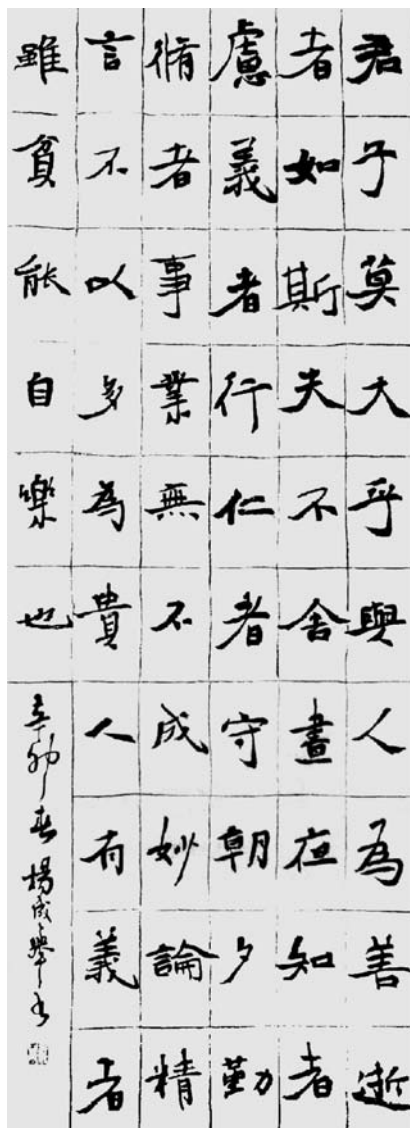 君子莫大乎與人為善逝
者如斯夫不舍晝夜知者
慮義者行仁者守朝夕勤
脩者事業無不成妙論精
言不以多為貴人有義者
雖貧能自樂也
辛卯春楊成舉書